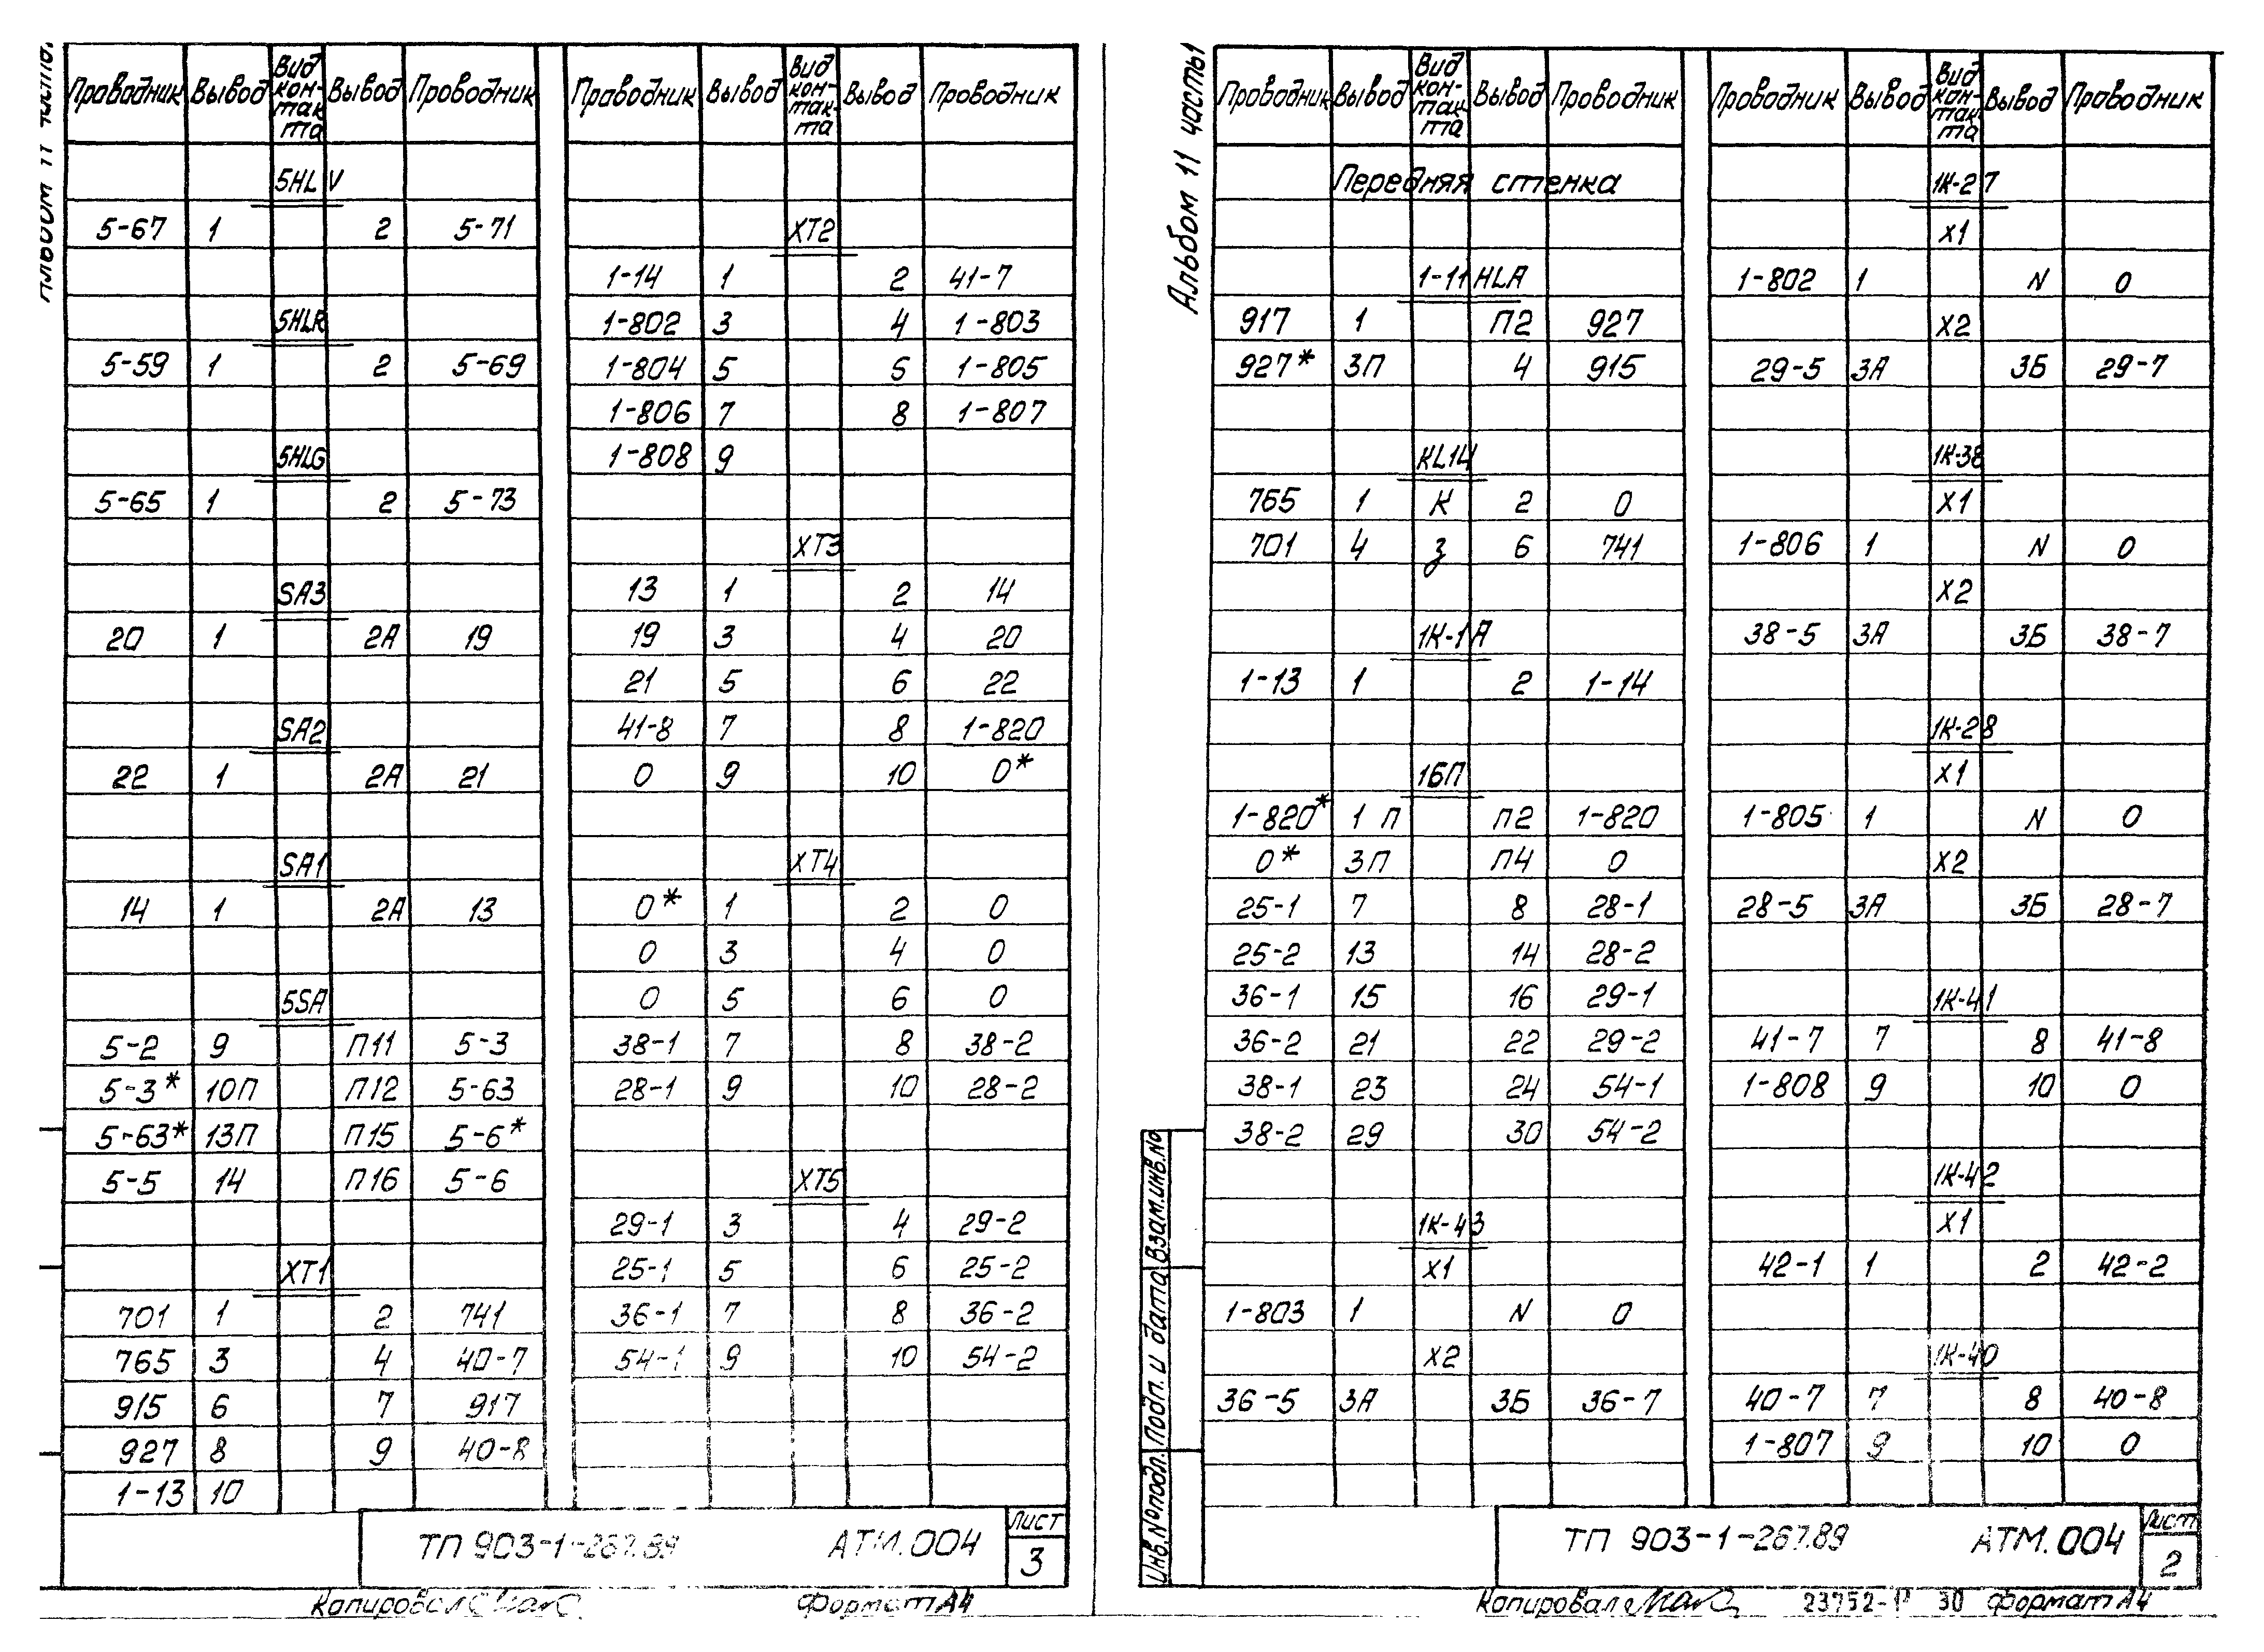 Альбом 11 часть
Проводник Вывод Вид кон-такта Вывод Проводник
5HLV
5-67 1 2 5-71
5HLR
5-59 1 2 5-69
5HLG
5-65 1 2 5-73
SA3
20 1 2А 19
SA2
22 1 2А 21
SA1
14 1 2А 13
5SA
5-2 9 П11 5-3
5-3* 10П П12 5-63
5-63* 13П П15 5-6*
5-5 14 П16 5-6
XT1
701 1 2 741
765 3 4 40-7
915 6 7 917
927 8 9 40-8
1-13 10
Проводник Вывод Вид кон-так-та Вывод Проводник
XT2
1-14 1 2 41-7
1-802 3 4 1-803
1-804 5 5 1-805
1-806 7 8 1-807
1-808 9
XT3
13 1 2 14
19 3 4 20
21 5 6 22
41-8 7 8 1-820
0 9 10 0*
XT4
0* 1 2 0
0 3 4 0
0 5 6 0
38-1 7 8 38-2
28-1 9 10 28-2
XT5
29-1 3 4 29-2
25-1 5 6 25-2
36-1 7 8 36-2
54-1 9 10 54-2
ТП 903-1-267.89 АТМ.004
Лист
3
Копировал
Формат А4
Альбом 11 часть 1
Проводник Вывод Вид кон-так-та Вывод Проводник
Передняя стенка
1-11HLA
917 1 П2 927
927* 3П 4 915
KL14
765 1 К 2 0
701 4 З 6 741
1К-1А
1-13 1 2 1-14
1БП
1-820* 1 П П2 1-820
0* 3П П4 0
25-1 7 8 28-1
25-2 13 14 28-2
36-1 15 16 29-1
36-2 21 22 29-2
38-1 23 24 54-1
38-2 29 30 54-2
1К-43
X1
1-803 1 N 0
X2
36-5 3А 3Б 36-7
Проводник Вывод Вид кон-так-та Вывод Проводник
1К-27
X1
1-802 1 N 0
X2
29-5 3А 3Б 29-7
1К-38
X1
1-806 1 N 0
X2
38-5 3А 3Б 38-7
1К-28
X1
1-805 1 N 0
X2
28-5 3А 3Б 28-7
1К-41
41-7 7 8 41-8
1-808 9 10 0
1К-42
X1
42-1 1 2 42-2
1К-40
40-7 7 8 40-8
1-807 9 10 0
Инв.№подл. Подп. и дата Взам.инв.№
ТП 903-1-267.89 АТМ.004
Лист
2
Копировал
23752-
30 Формат А4